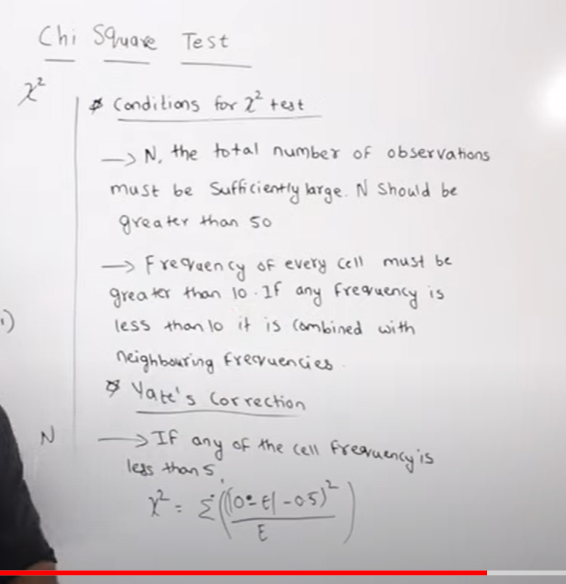 Chi Square Test
χ²
* Conditions for χ² test
→ N, the total number of observations
must be Sufficiently large. N Should be
greater than 50
→ Frequency of every cell must be
greater than 10. If any frequency is
less than 10 it is combined with
neighbouring frequencies.
* Yate's Correction
N
→ If any of the cell frequency is
less than 5,
χ² = Σ ((|O-E|-0.5)² / E)